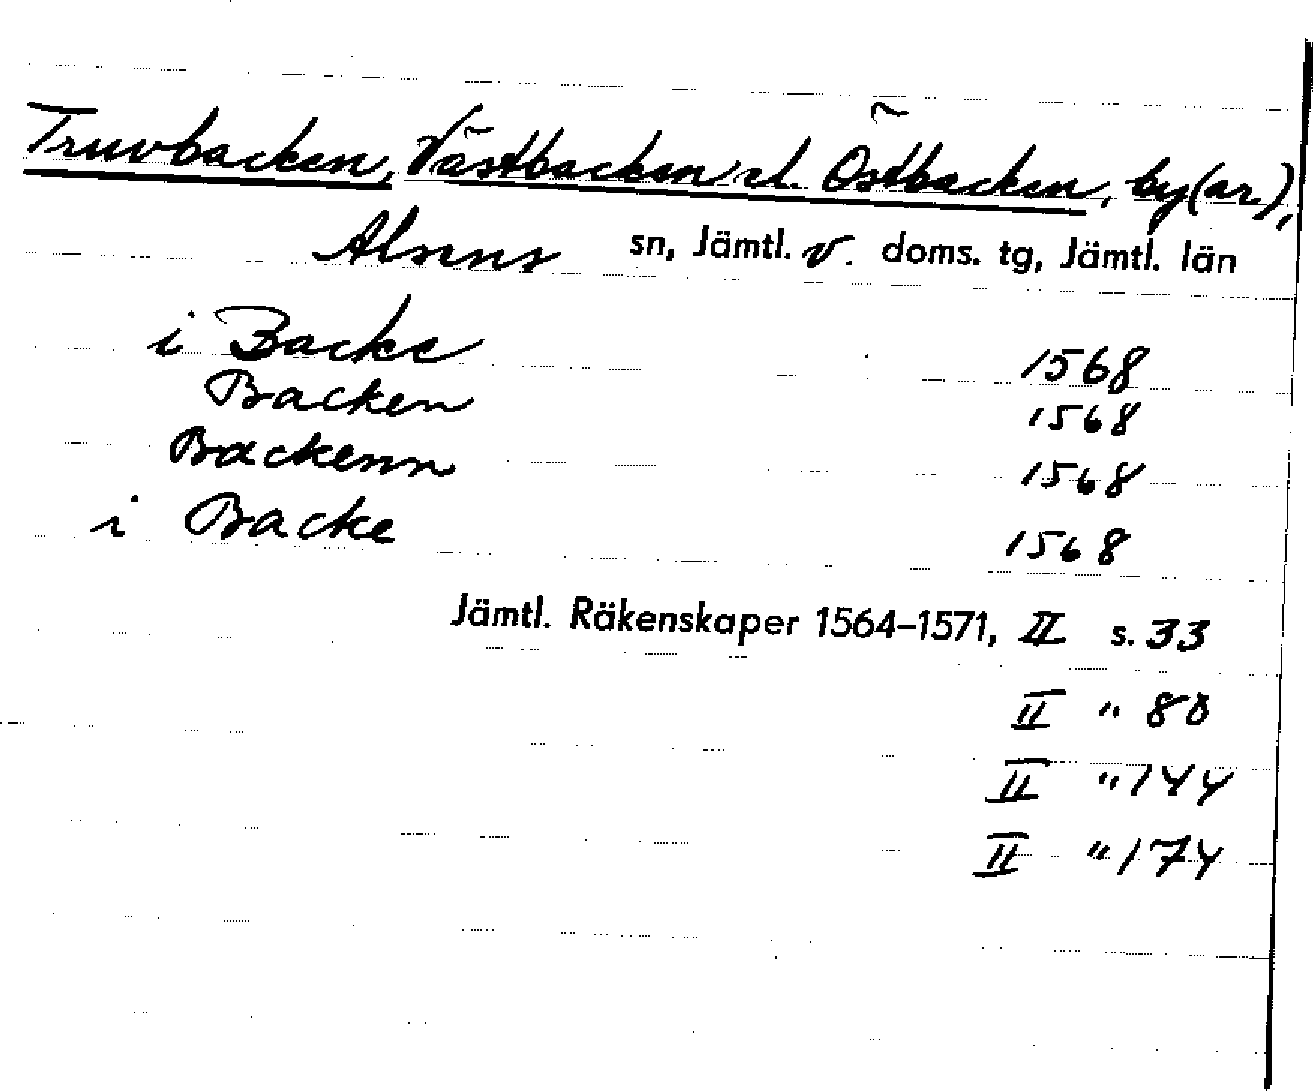 Truvbacken, Västbacken el. Östbacken, by(ar),
Alsens sn, Jämtl. v. doms. tg, Jämtl. län
i Backe 1568
Backen 1568
Backenn 1568
i Backe 1568
Jämtl. Räkenskaper 1564–1571, II s. 33
II " 80
II " 144
II " 174